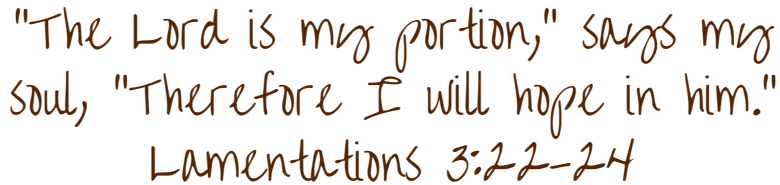 "The Lord is my portion," says my
soul, "Therefore I will hope in him."
Lamentations 3:22-24